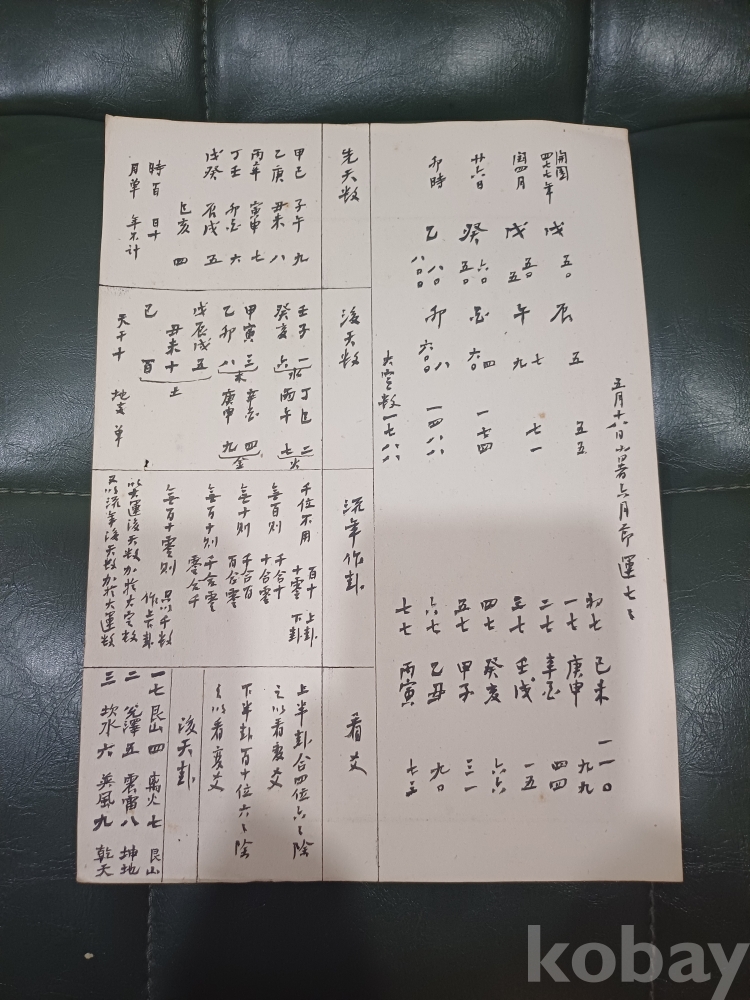 五月十八日小暑六月節 運七〻
開國四七七年 戊 五〇 辰 五 五五
閏四月 戊 五〇 五 午 七 九 七一
廿六日 癸 六〇 五〇 酉 四 六〇 一七四
卯時 乙 八〇 八〇〇 卯 八 六〇〇 一四八八
大定數 一七八八
初七 己未 一一〇
一七 庚申 九九
二七 辛酉 四四
三七 壬戌 一五
四七 癸亥 六六
五七 甲子 三一
六七 乙丑 九〇
七七 丙寅 七三
先天数
甲己 子午 九
乙庚 丑未 八
丙辛 寅申 七
丁壬 卯酉 六
戊癸 辰戌 五
巳亥 四
時百 日十
月单 年不計
後天数
壬子 一 丁巳 二
癸亥 六 水 丙午 七 火
甲寅 三 辛酉 四
乙卯 八 木 庚申 九 金
戊辰戌 五
丑未 十 土
己 百
天干十 地支单
流年作卦
千位不用 百十 上卦
十零 下卦
無百則 千合十
十合零
無十則 千合百
百合零
無百十則 千合零
零合千
無百十零則 只以千数
作上下卦
以大運後天数加於大定数
又以流年後天数加於大運数
看爻
上半卦合四位六〻除
之以看变爻
下半卦百十位六〻除
之以看变爻
後天卦
一七 艮山 四 离火 七 艮山
二 兌澤 五 震雷 八 坤地
三 坎水 六 巽風 九 乾天
kobay